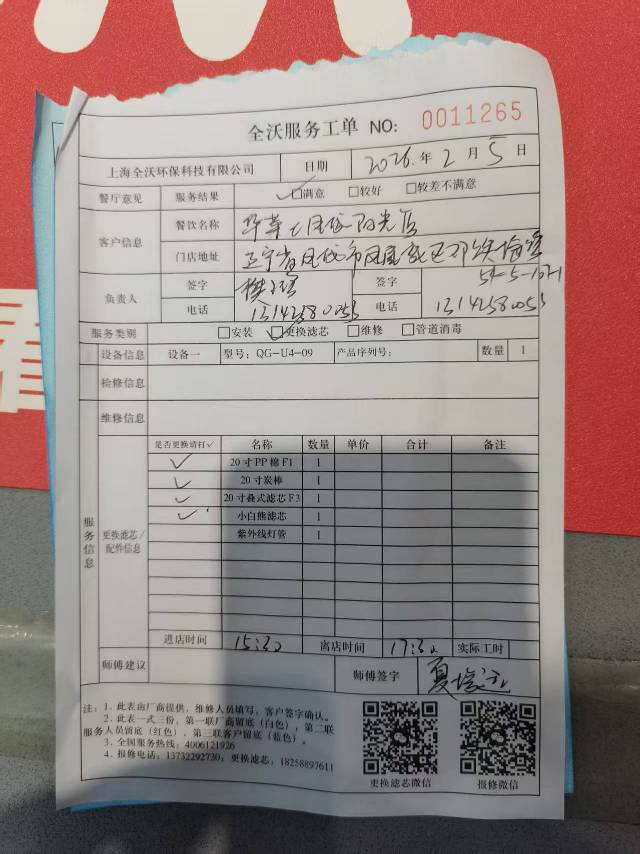 全沃服务工单 NO: 0011265
上海全沃环保科技有限公司 日期 2026年2月5日
餐厅意见 服务结果 ☑满意 □较好 □较差不满意
客户信息 餐饮名称
门店地址
负责人 签字 签字
电话 13142580055 电话 13142580055
服务类别 □安装 ☑更换滤芯 □维修 □管道消毒
设备信息 设备一 型号: QG-U4-09 产品序列号: 数量 1
检修信息
维修信息
服务信息 更换滤芯/配件信息
是否更换请打✓ 名称 数量 单价 合计 备注
✓ 20寸PP棉F1 1
✓ 20寸炭棒 1
✓ 20寸叠式滤芯F3 1
✓ 小白熊滤芯 1
紫外线灯管 1
进店时间 15:30 离店时间 17:30 实际工时
师傅建议 师傅签字
注: 1. 此表由厂商提供, 维修人员填写, 客户签字确认。
2. 此表一式三份, 第一联厂商留底(白色), 第二联
服务人员留底(红色), 第三联客户留底(蓝色)。
3. 全国服务热线: 4006121926
4. 报修电话: 13732292730; 更换滤芯: 18258897611
更换滤芯微信 报修微信